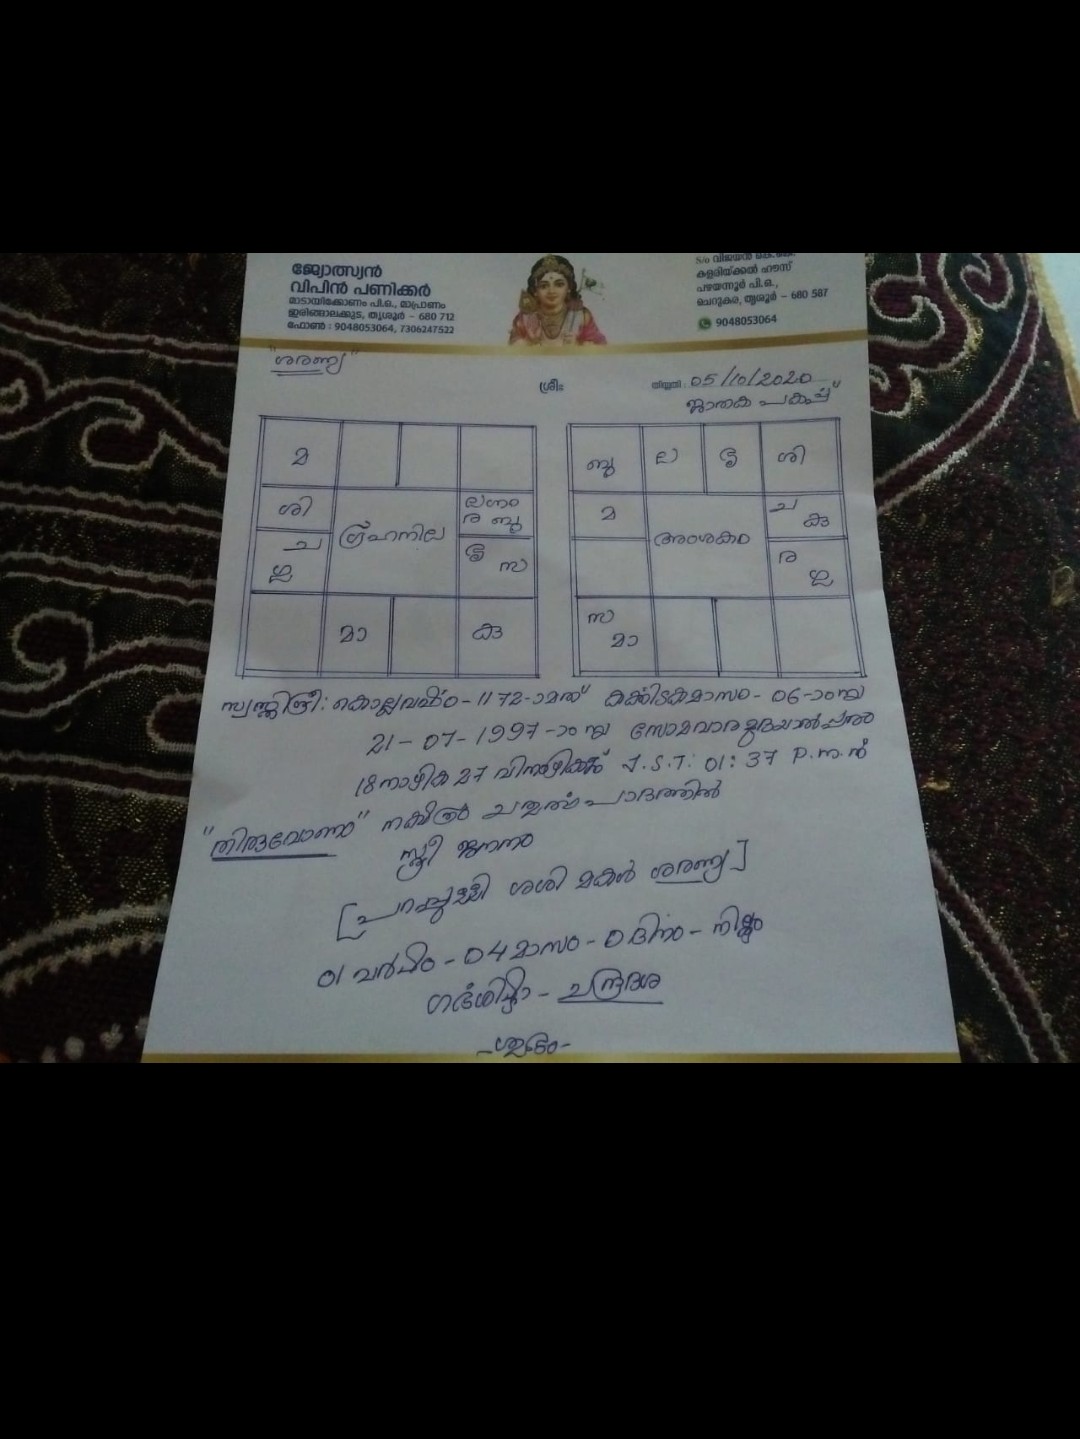 ജ്യോത്സ്യൻ
വിപിൻ പണിക്കർ
മാടായിക്കോണം പി.ഒ., മാപ്രാണം
ഇരിങ്ങാലക്കുട, തൃശൂർ – 680 712
ഫോൺ : 9048053064, 7306247522
S/o വിജയൻ കെ.കെ.
കളരിയ്ക്കൽ ഹൗസ്
പഴയന്നൂർ പി.ഒ.,
ചെറുകര, തൃശൂർ – 680 587
9048053064
"ശരണ്യ"
ശ്രീഃ
തിയ്യതി : 05/10/2020
ജാതക പകർപ്പ്
മ
ശി
ഗ്രഹനില
ലഗ്നം
ര ബു
ച
ഗു
സ
മാ
കു
ബു ല ശി
മ
അംശകം
ച
കു
ര
ഗു
സ
മാ
സ്വസ്തിശ്രീ: കൊല്ലവർഷം - 1172-ാമത് കർക്കിടകമാസം - 06-ാംനു
21-07-1997-ാംനു സോമവാര
18 നാഴിക 27 വിനാഴികക്ക് I.S.T: 01:37 P.m ന്
"തിരുവോണം" നക്ഷത്രം ചതുർത്ഥ പാദത്തിൽ
സ്ത്രീ ജനനം
[ ശശി മകൾ ശരണ്യ ]
01 വർഷം - 04 മാസം - 0 ദിനം -
ഗർഭശിഷ്ടം - ചന്ദ്രദശ
- ശുഭം -